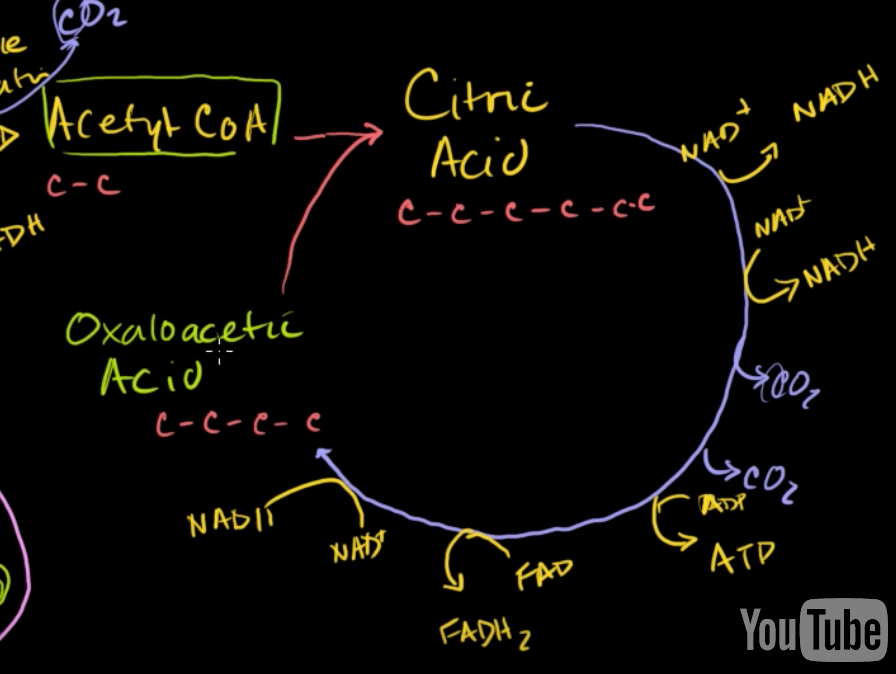 CO2
Acetyl CoA
C-C
Citric
Acid
C-C-C-C-C-C
NAD+
NADH
NAD+
NADH
CO2
CO2
ADP
ATP
FAD
FADH2
NAD+
NADH
Oxaloacetic
Acid
C-C-C-C
YouTube